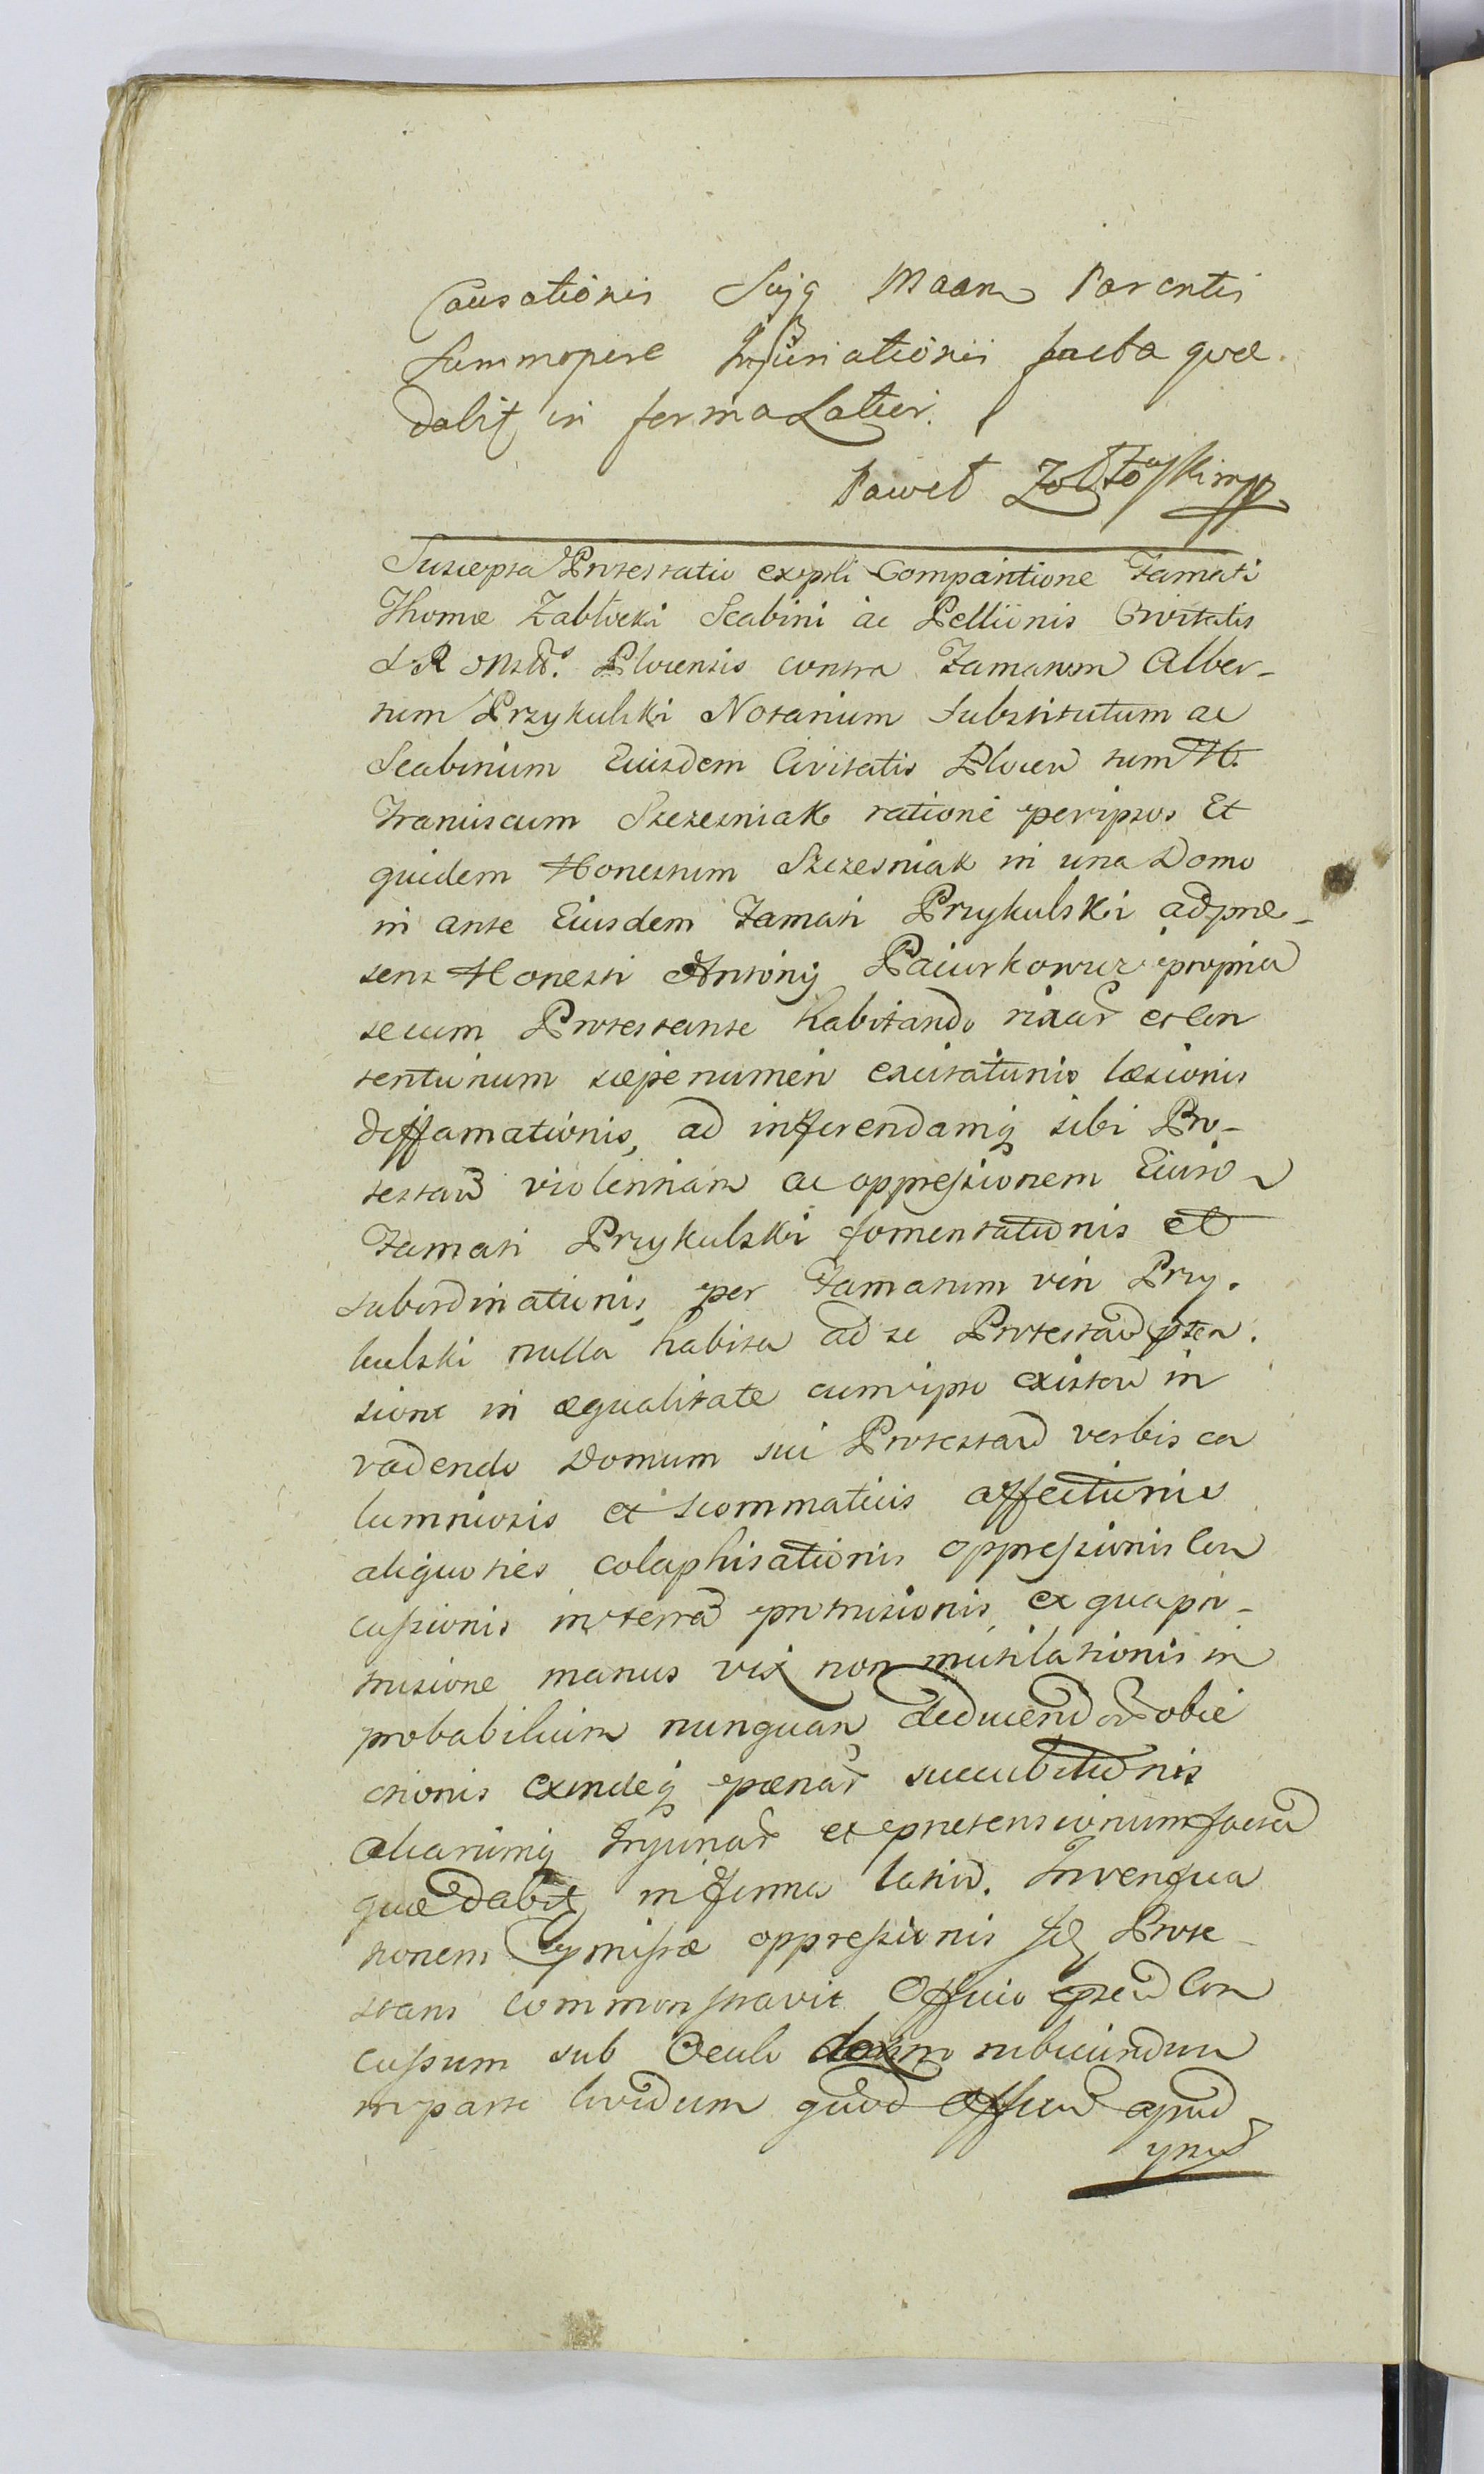 Causationis Sujq Maan Parentis
Summopere Injuriationis facta quæ
dabit in forma Latior.
Paweł Zołtowski mp
Suscepta Protestatio ex psli Comparitione Famati
Thomæ Zabłocki Scabini ac Pellionis Civitatis
S. R. Mttis. Plocensis contra Famatum Alber-
tum Przykulski Notarium Substitutum ac
Scabinum Eiusdem Civitatis Plocen tum H.
Franciscum Szczesniak ratione per ipsos Et
quidem Honestum Szczesniak in una Domo
in ante Eiusdem Famati Przykulski ad præ-
sens Honesti Antonij Paciorkowicz propria
secum Protestante habitando rixar et Con
tentionum sæpenumero excitationis læsionis
deffamationis, ad inferendamq sibi Pro-
testan violentiam ac oppressionem Eiusd
Famati Przykulski fomentationis et
subordinationis, per Famatum vero Przy.
kulski nulla habita ad se Protestan præten.
sione in æqualitate cum ipso existen in
vadendo Domum sui Protestan verbis ca
lumniosis et scommaticis affectionis
aliquoties colaphisationis oppressionis Con
cussionis in terra promisionis, ex qua pro-
misione manus vix non mutilationis in
probabilium nunquam deducendor obie
ctionis exindeq pænar succubitionis
aliarumq Injuriar et prætensionum facta
quæ dabit in forma latior.
nonem præmissæ oppressionis se Prote
stans commonstravit Officio præsen Con
cussum sub Oculo rubicundum
in parte lividum quod Officiu apud